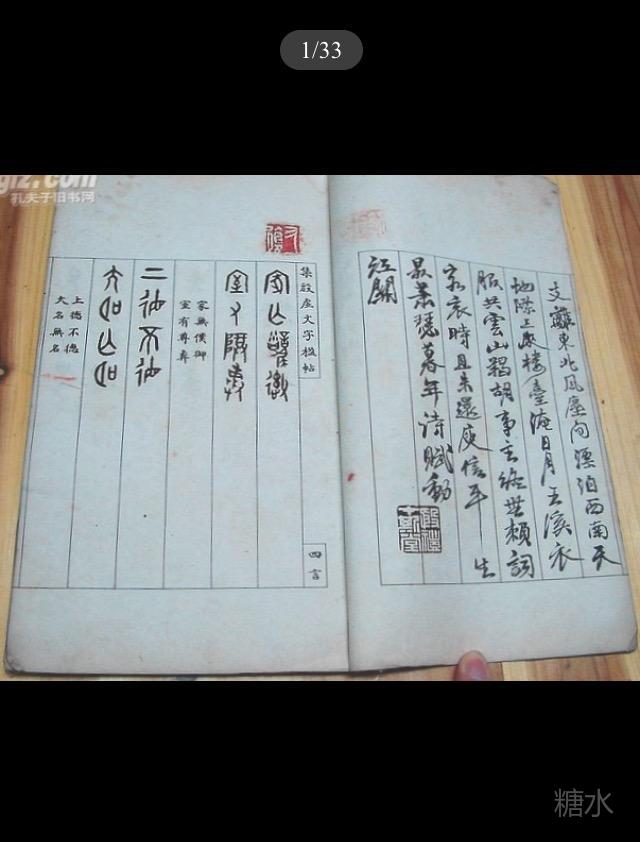 1/33
孔夫子旧书网
支離東北風塵間漂泊西南天
地際三峽樓臺淹日月五溪衣
服共雲山羯胡事主終無賴詞
客哀時且未還庾信平生
最蕭瑟暮年詩賦動
江關
集殷虛文字楹帖
四言
家亡僕御
室又尊彝
家無僕御
室有尊彝
上德不德
大名亡名
上德不德
大名無名
糖水